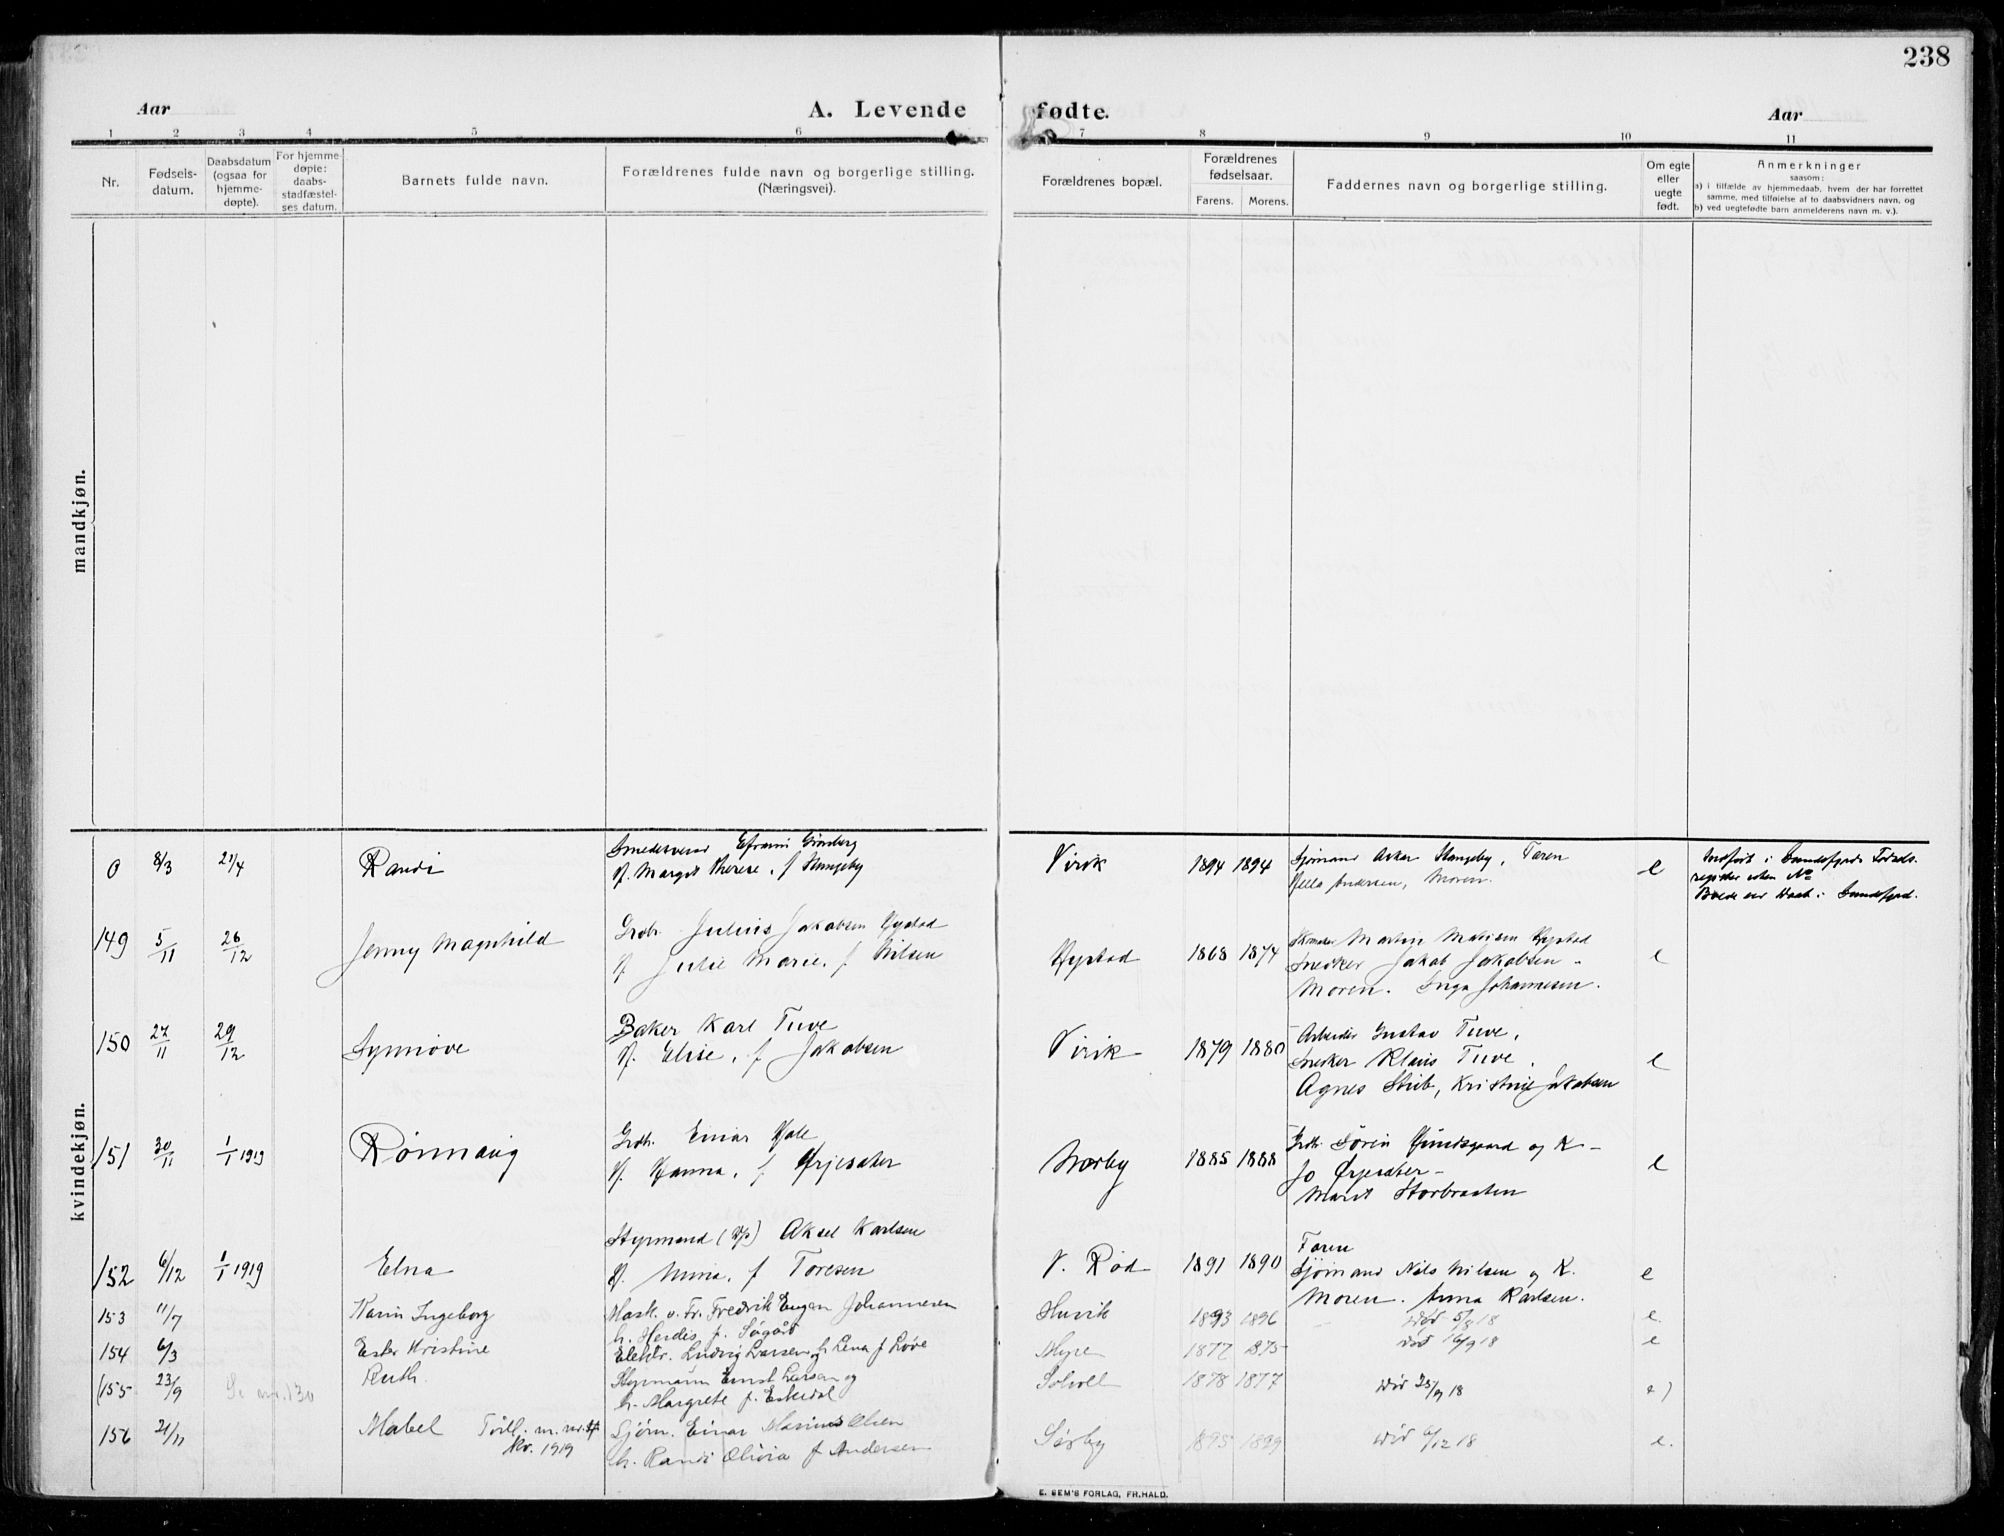 238
Aar
A. Levende fødte.
Aar
1 2 3 4 5 6 7 8 9 10 11
Nr.
Fødsels-
datum.
Daabsdatum
(ogsaa for
hjemme-
døpte).
For hjemme-
døpte:
daabs-
stadfæstel-
ses datum.
Barnets fulde navn.
Forældrenes fulde navn og borgerlige stilling.
(Næringsvei).
Forældrenes bopæl.
Forældrenes
fødselsaar.
Farens. Morens.
Faddernes navn og borgerlige stilling.
Om egte
eller
uegte
født.
Anmerkninger
saasom:
a) i tilfælde av hjemmedaab, hvem der har forrettet
samme, med tilføielse af to daabsvidners navn, og
b) ved uegtefødte barn anmelderens navn m. v.).
mandkjøn.
kvindekjøn.
0 8/3 21/4 Randi
Smedesvend Efraim
H. Margit Therese, f
Virik 1894 1894
Sjömand Asker Stangeby, Faren
Andersen, Moren.
e
Indført i Sandefjords Fødsels-
register uten No
Daab i Sandefjord.
149 5/11 26/12 Jenny Magnhild
Grdbr. Julius Jakobsen Hystad
H. Julie Marie, f Nilsen
Hystad 1868 1874
Martin Hystad
Snekker Jakob Jakobsen -
Moren. Inga Johannesen.
e
150 27/11 29/12 Synnöve
Baker Karl Tuve
H. Elise, f Jakobsen
Virik 1879 1880
Arbeider Gustav Tuve,
Snekker Klaus Tuve,
Agnes Stub, Kristine Jakobsen
e
151 30/11 1/1 1919 Rönnaug
Grdbr. Einar
H. Hanna, f Ørjesæter
Nordby 1885 1888
Grdbr. Sören og K -
Jo Ørjesæter -
Marit Storbraaten
e
152 6/12 1/1 1919 Elna
Styrmand Aksel Karlsen
H. Mina, f Toresen
V. Röd 1891 1890
Faren
Sjömand Nils Nilsen og K.
Moren. Anna Karlsen.
e
153 11/7 Karin Ingeborg
Mask. v. Fr. Fredrik Eugen Johannesen
h. Herdis f. Søgård
Huvik 1893 1896 död 5/8 18 e.
154 6/3 Ester Kristine
Elektr. Ludvig Larsen h Lena f Löve
Myre 1877 1875 död 16/9 18 e
(155 23/9 Se nr. 130 Ruth.
Styrmann Ernst Larsen og
h. Margrete f. Eskedal
Solvoll 1878 1877 död 25/9 18 e)
156 21/11 Mabel Tvill. m. nr.
kv. 1919
Sjöm. Einar Marinus Olsen
h. Randi Olivia f Andersen
Sörby 1895 1899 död 6/12 18 e.
E. SEM'S FORLAG, FR.HALD.